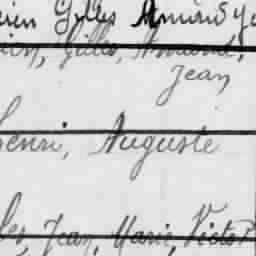 Gilles Amand
Gilles, Amand,
Jean
Henri, Auguste
Jean, Marie, Victor